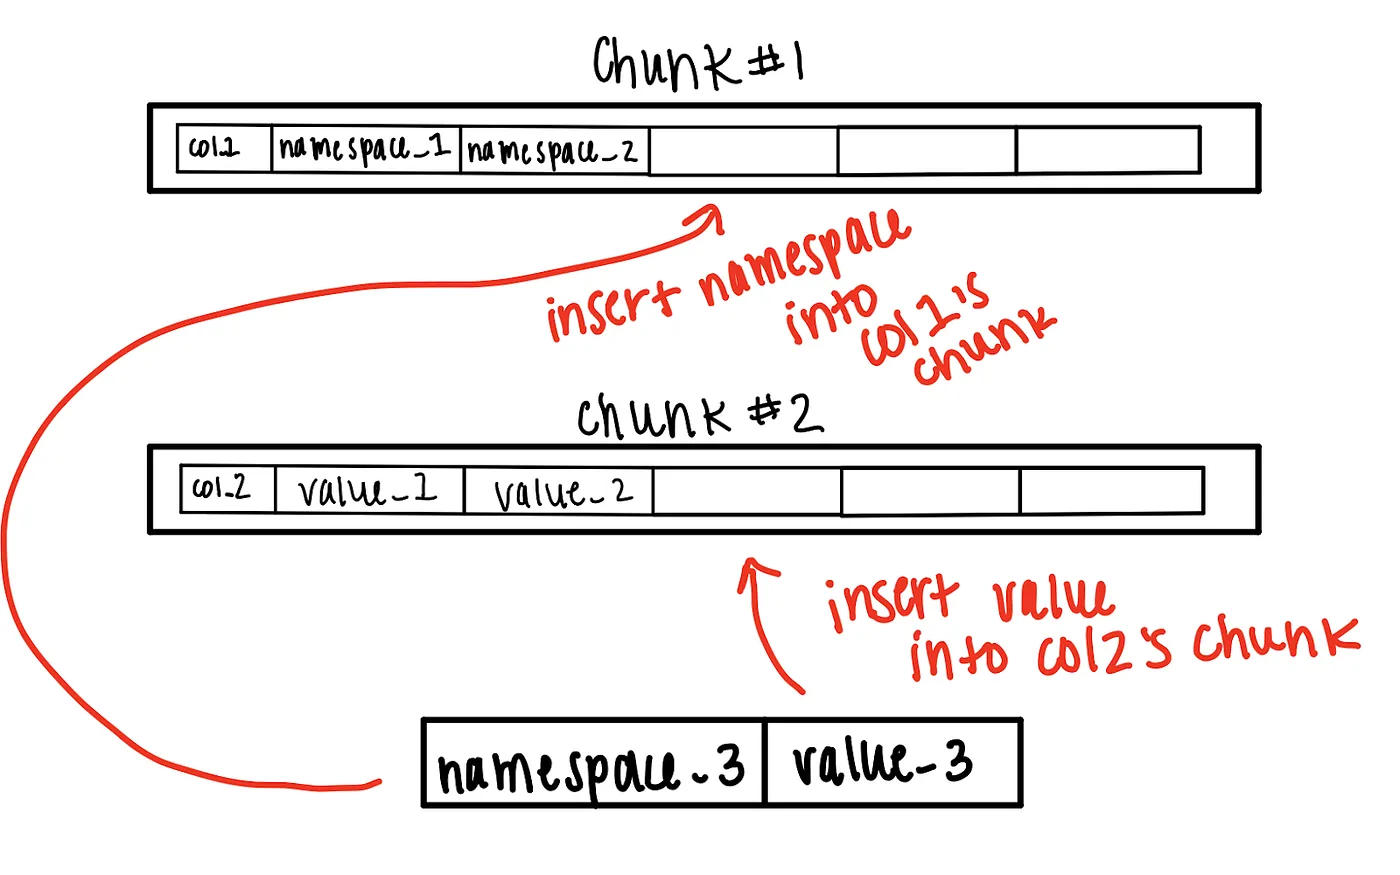 Chunk #1
col_1 namespace_1 namespace_2
insert namespace
into
col1's
chunk
chunk #2
col_2 value_1 value_2
insert value
into col2's chunk
namespace_3 value_3